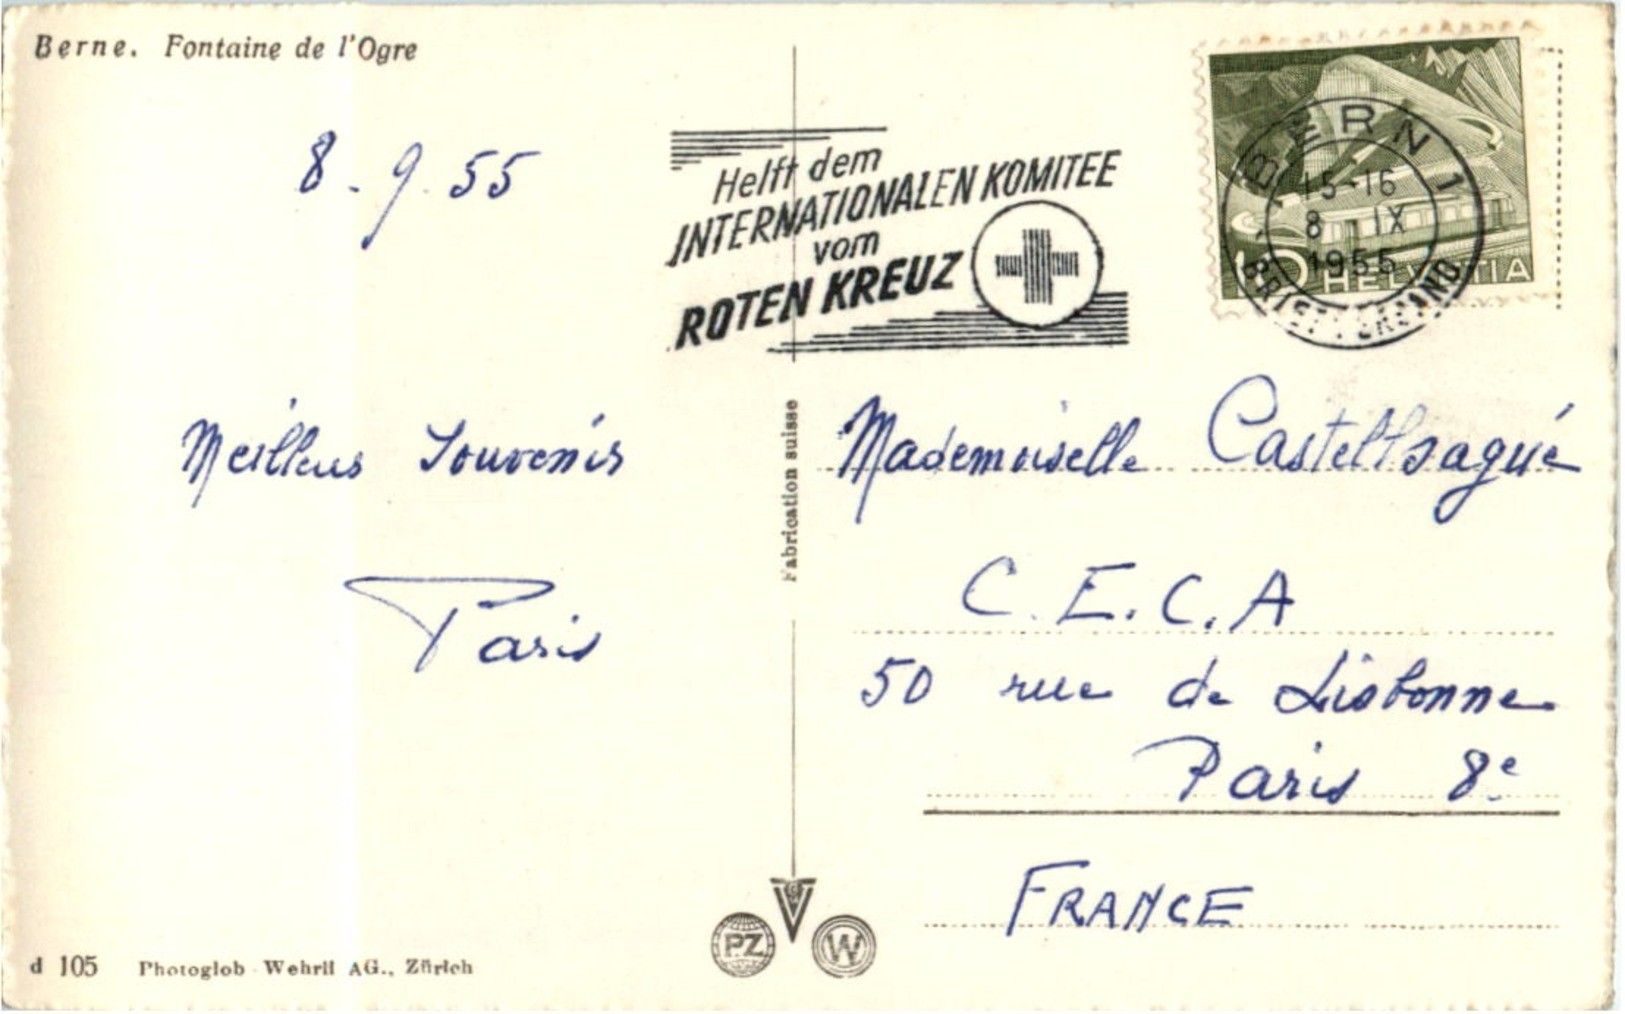 Berne. Fontaine de l'Ogre
8.9.55
Helft dem
INTERNATIONALEN KOMITEE
vom
ROTEN KREUZ
BERN 1
15-16
8 IX
1955
BRIEFVERSAND
10 HELVETIA
Meilleurs Souvenirs
Paris
Fabrication suisse
Mademoiselle Casteltsagué
C.E.C.A
50 rue de Lisbonne
Paris 8e
FRANCE
PZ
W
d 105 Photoglob-Wehrli AG., Zürich